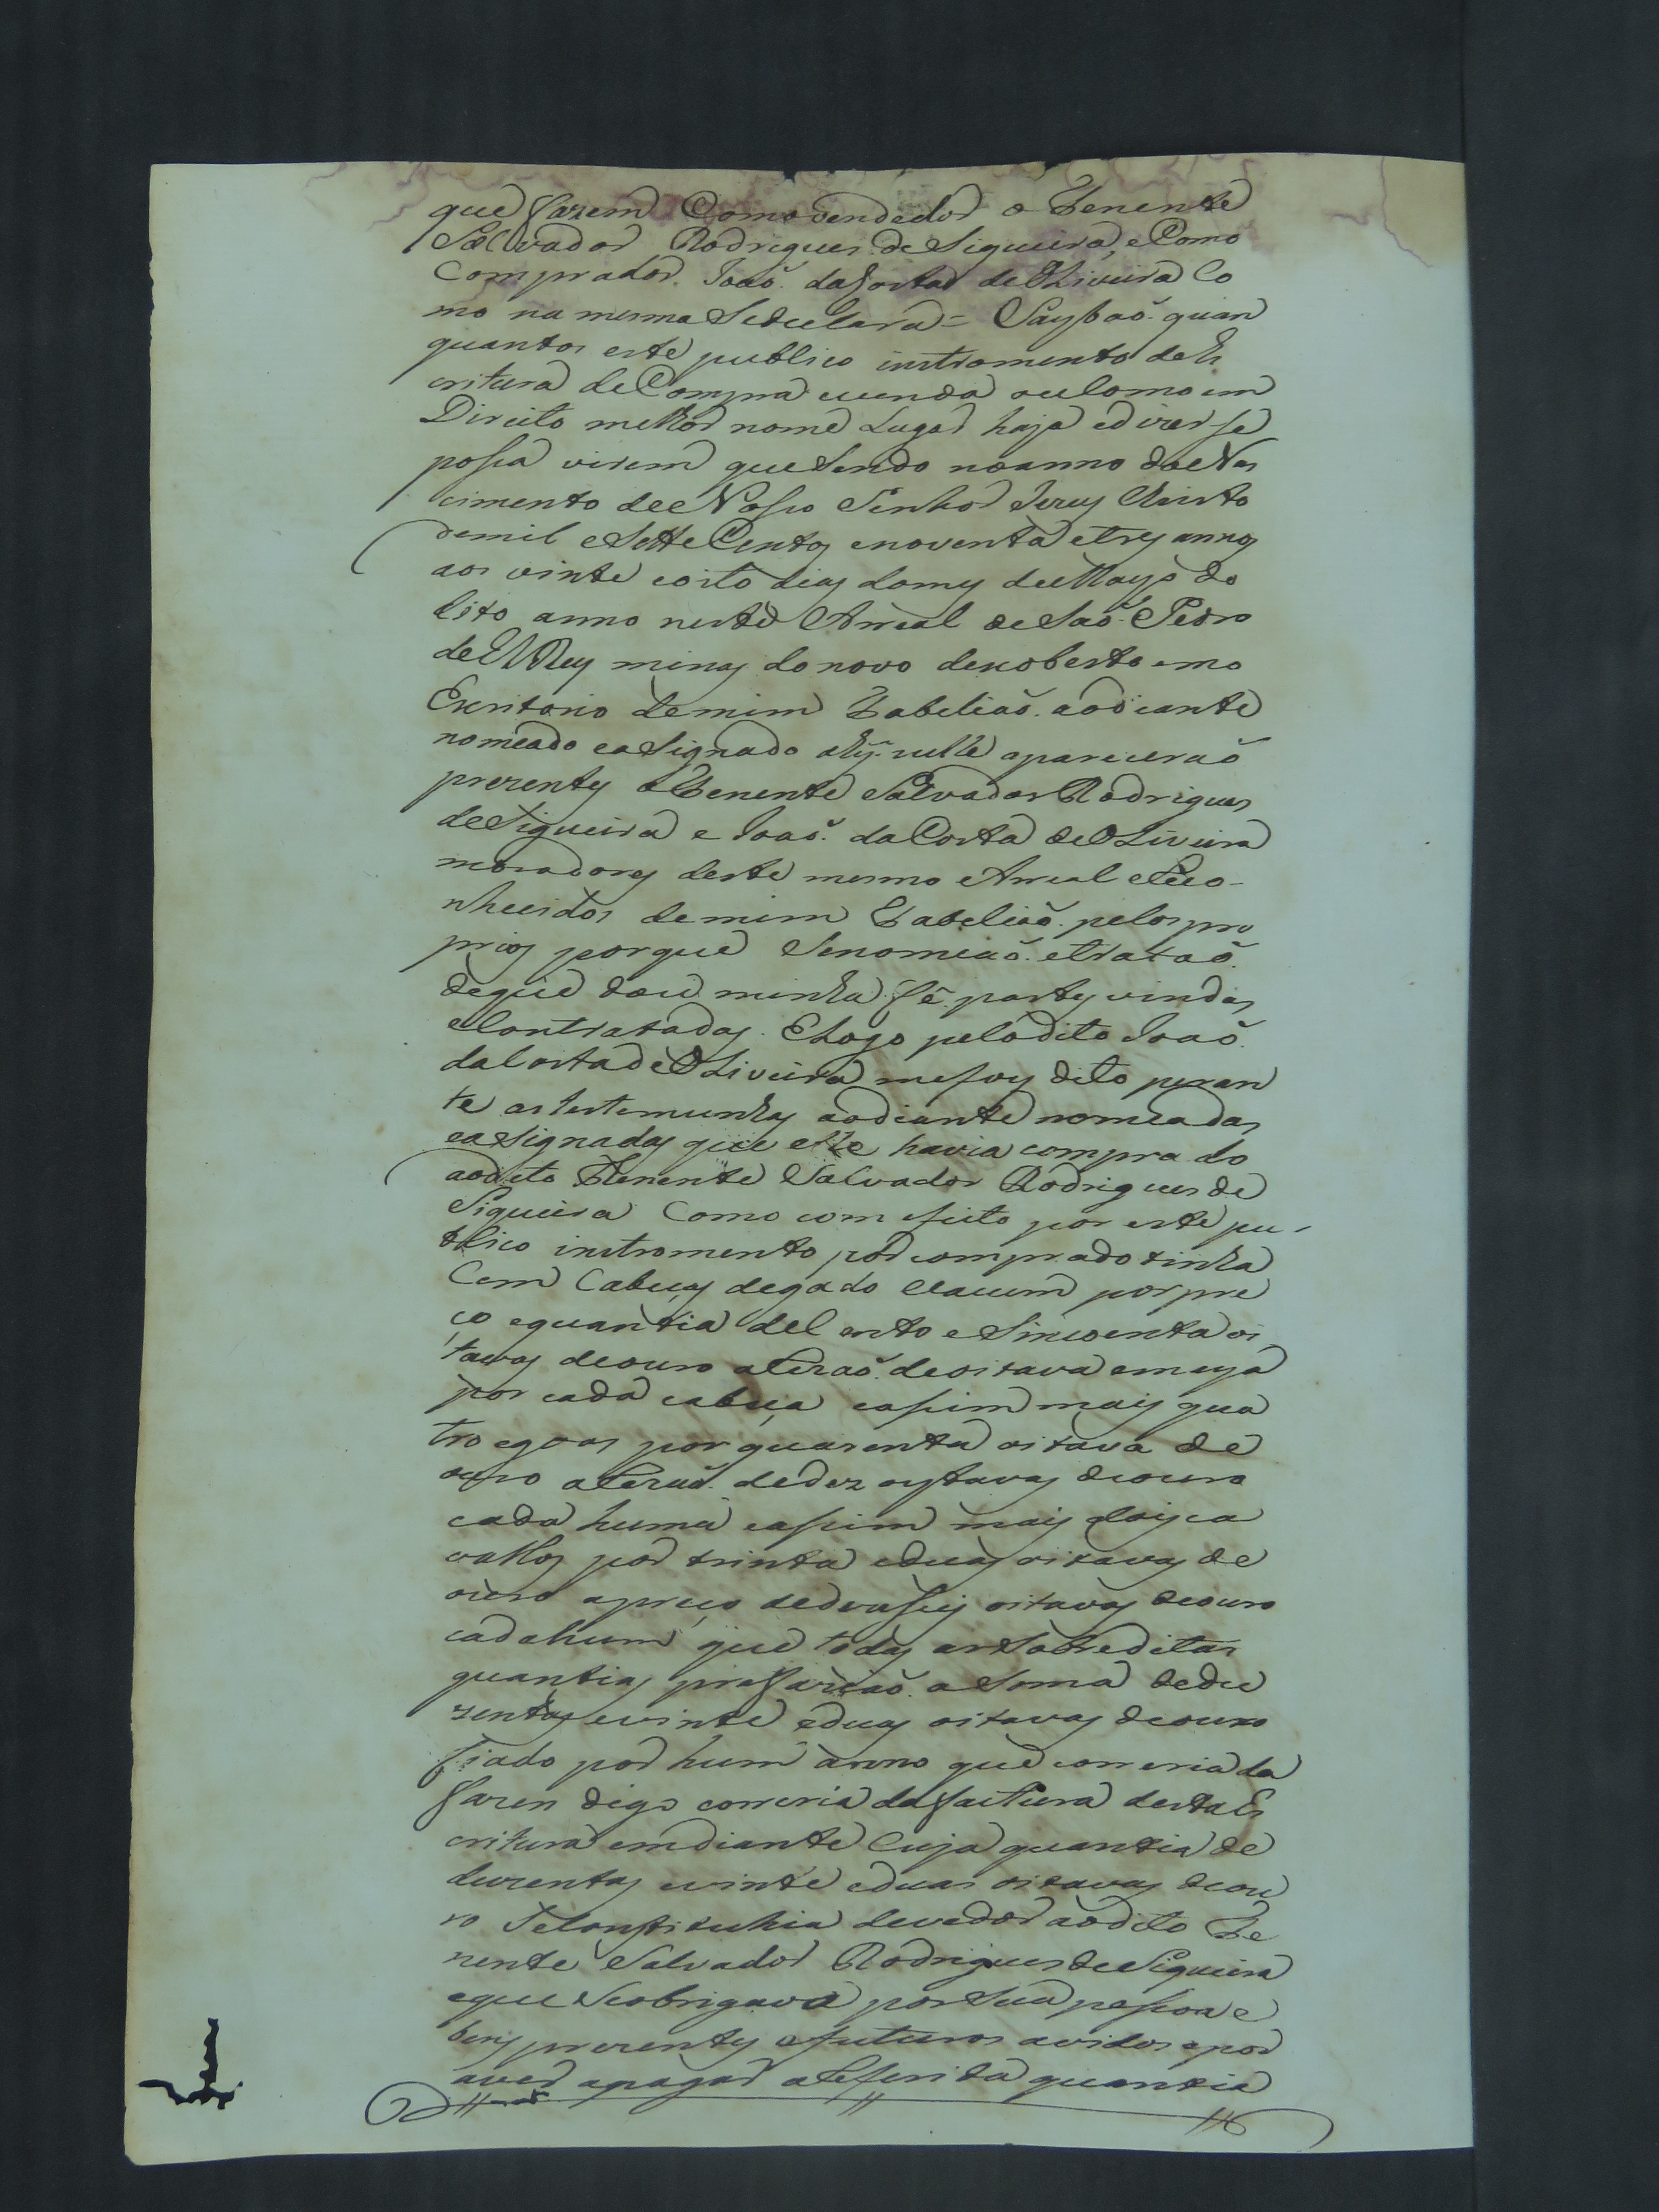 que fazem Como vendedor o Tenente
Salvador Rodrigues de Siqueira, e Como
Comprador João da Costa de Oliveira Co
mo na mesma Sedeclara = Saybaõ quan
quantos este publico instromento de Es
critura de Compra e venda ou Como em
Direito melhor nome Lugar haja e dizer se
possa virem que Sendo no anno do Nas
cimento de Nosso Senhor Jezus Christo
de mil e Sette Centos e noventa e tres annos
aos vinte e oito dias do mes de Mayo do
dito anno neste Arreal de Saõ Pedro
de El Rey minas do novo descoberto e no
Escritorio de mim Tabeliaõ ao diante
nomeado e asignado ahy nelle apareceraõ
prezentes o Tenente Salvador Rodrigues
de Siqueira e Joaõ da Costa de Oliveira
moradores deste mesmo Arreal e Reco-
nhecidos de mim Tabeliaõ pelos pro
prios porque Senomeaõ e trataõ
de que dou minha fé partes vindas
e Contratadas. E Logo pelo dito Joaõ
da Costa de Oliveira me foy dito peran
te as testemunhas ao diante nomeadas
e asignadas que elle havia comprado
ao dito Tenente Salvador Rodrigues de
Siqueira Como com efeito por este pu-
blico instromento por comprado tinha
Cem Cabeças de gado Vacum por pre
ço e quantia de Cento e Sincoenta oi
tavas de ouro a Rezaõ de oitava e meya
por cada cabeça e asim mais qua
tro egoas por quarenta oitava de
ouro a Rezaõ de dez oytavas de ouro
cada huma e asim mais dois ca
vallos por trinta e duas oitavas de
ouro a preço de dezaseis oitavas de ouro
cada hum que todas as Sobreditas
quantias prefaziaõ a Soma de du
zentas e vinte e duas oitavas de ouro
fiado por hum anno que correria da
fazen digo correria da factura desta Es
critura em diante Cuja quantia de
duzentas e vinte e duas oitavas de ou
ro Se Constituhia devedor ao dito Te
nente Salvador Rodrigues de Siqueira
e que Se obrigava por Sua pessoa e
bens prezentes e futuros avidos e por
aver a pagar a Referida quantia